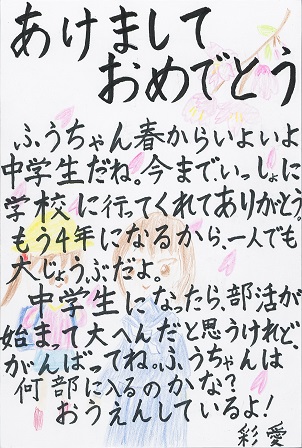 あけまして
おめでとう
ふうちゃん春からいよいよ
中学生だね。今まで、いっしょに
学校に行ってくれてありがとう。
もう4年になるから、一人でも
大じょうぶだよ。
中学生になったら、部活が
始まって大へんだと思うけれど、
がんばってね。ふうちゃんは
何部に入るのかな?
おうえんしているよ!
彩愛